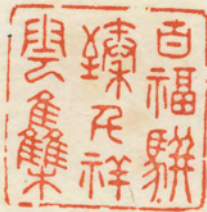 百福駢
臻千祥
雲集